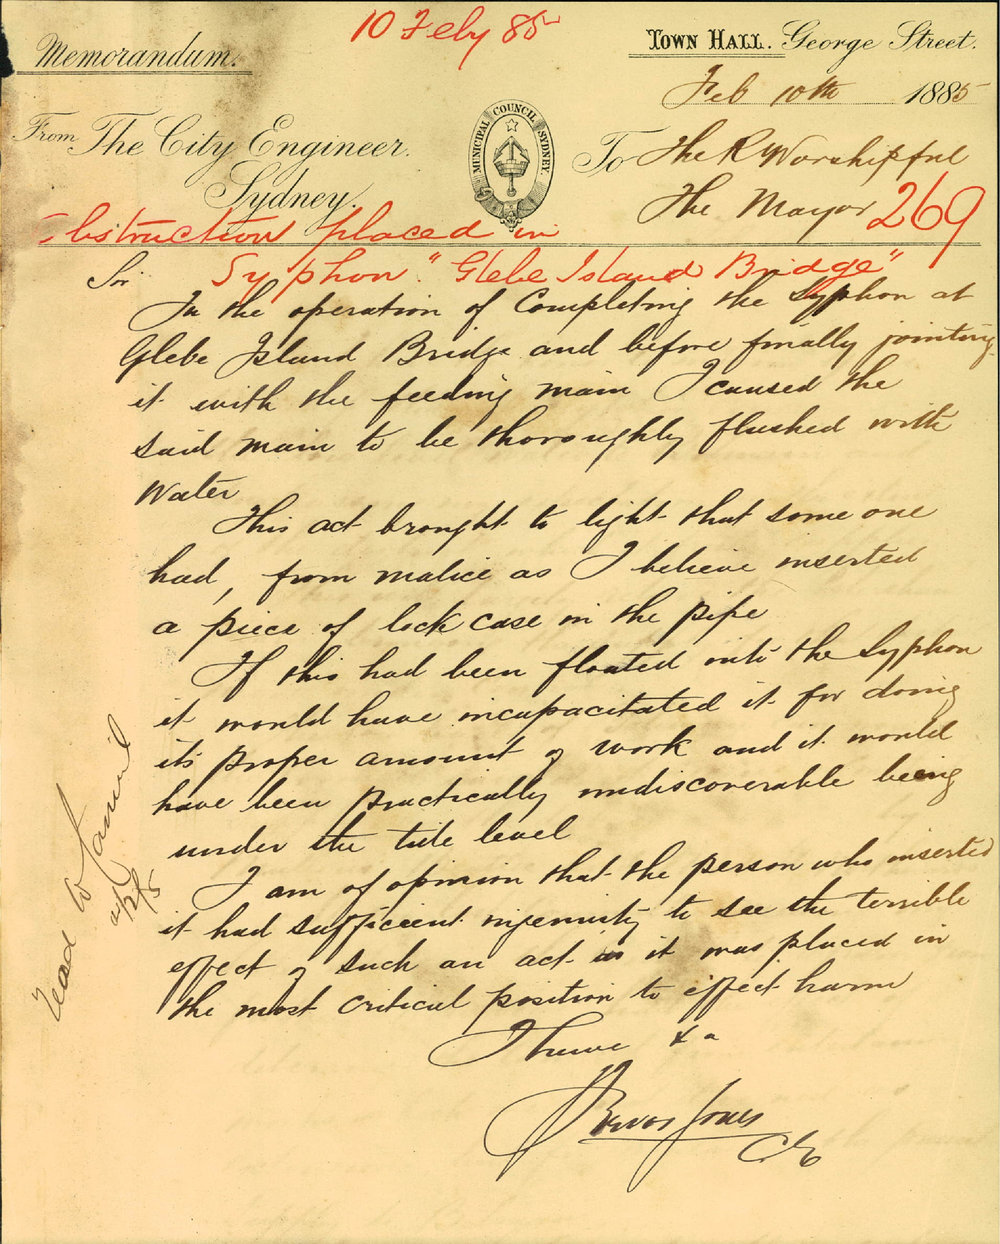 10 Feby 85
Memorandum.
TOWN HALL. George Street.
Feb 10th 1885
From The City Engineer.
Sydney.
MUNICIPAL COUNCIL SYDNEY.
To The R Worshipful
The Mayor
269
Obstruction placed in
Syphon "Glebe Island Bridge"
Sir
In the operation of Completing the Syphon at
Glebe Island Bridge and before finally jointing
it with the feeding main I caused the
said main to be thoroughly flushed with
Water
This act brought to light that some one
had, from malice as I believe inserted
a piece of lock case in the pipe
If this had been floated into the Syphon
it would have incapacitated it for doing
its proper amount of work and it would
have been practically undiscoverable being
under the tide level
I am of opinion that the person who inserted
it had sufficient ingenuity to see the terrible
effect of such an act as it was placed in
the most critical position to effect harm
I have &a
Trevor Jones
CE
Read to Council